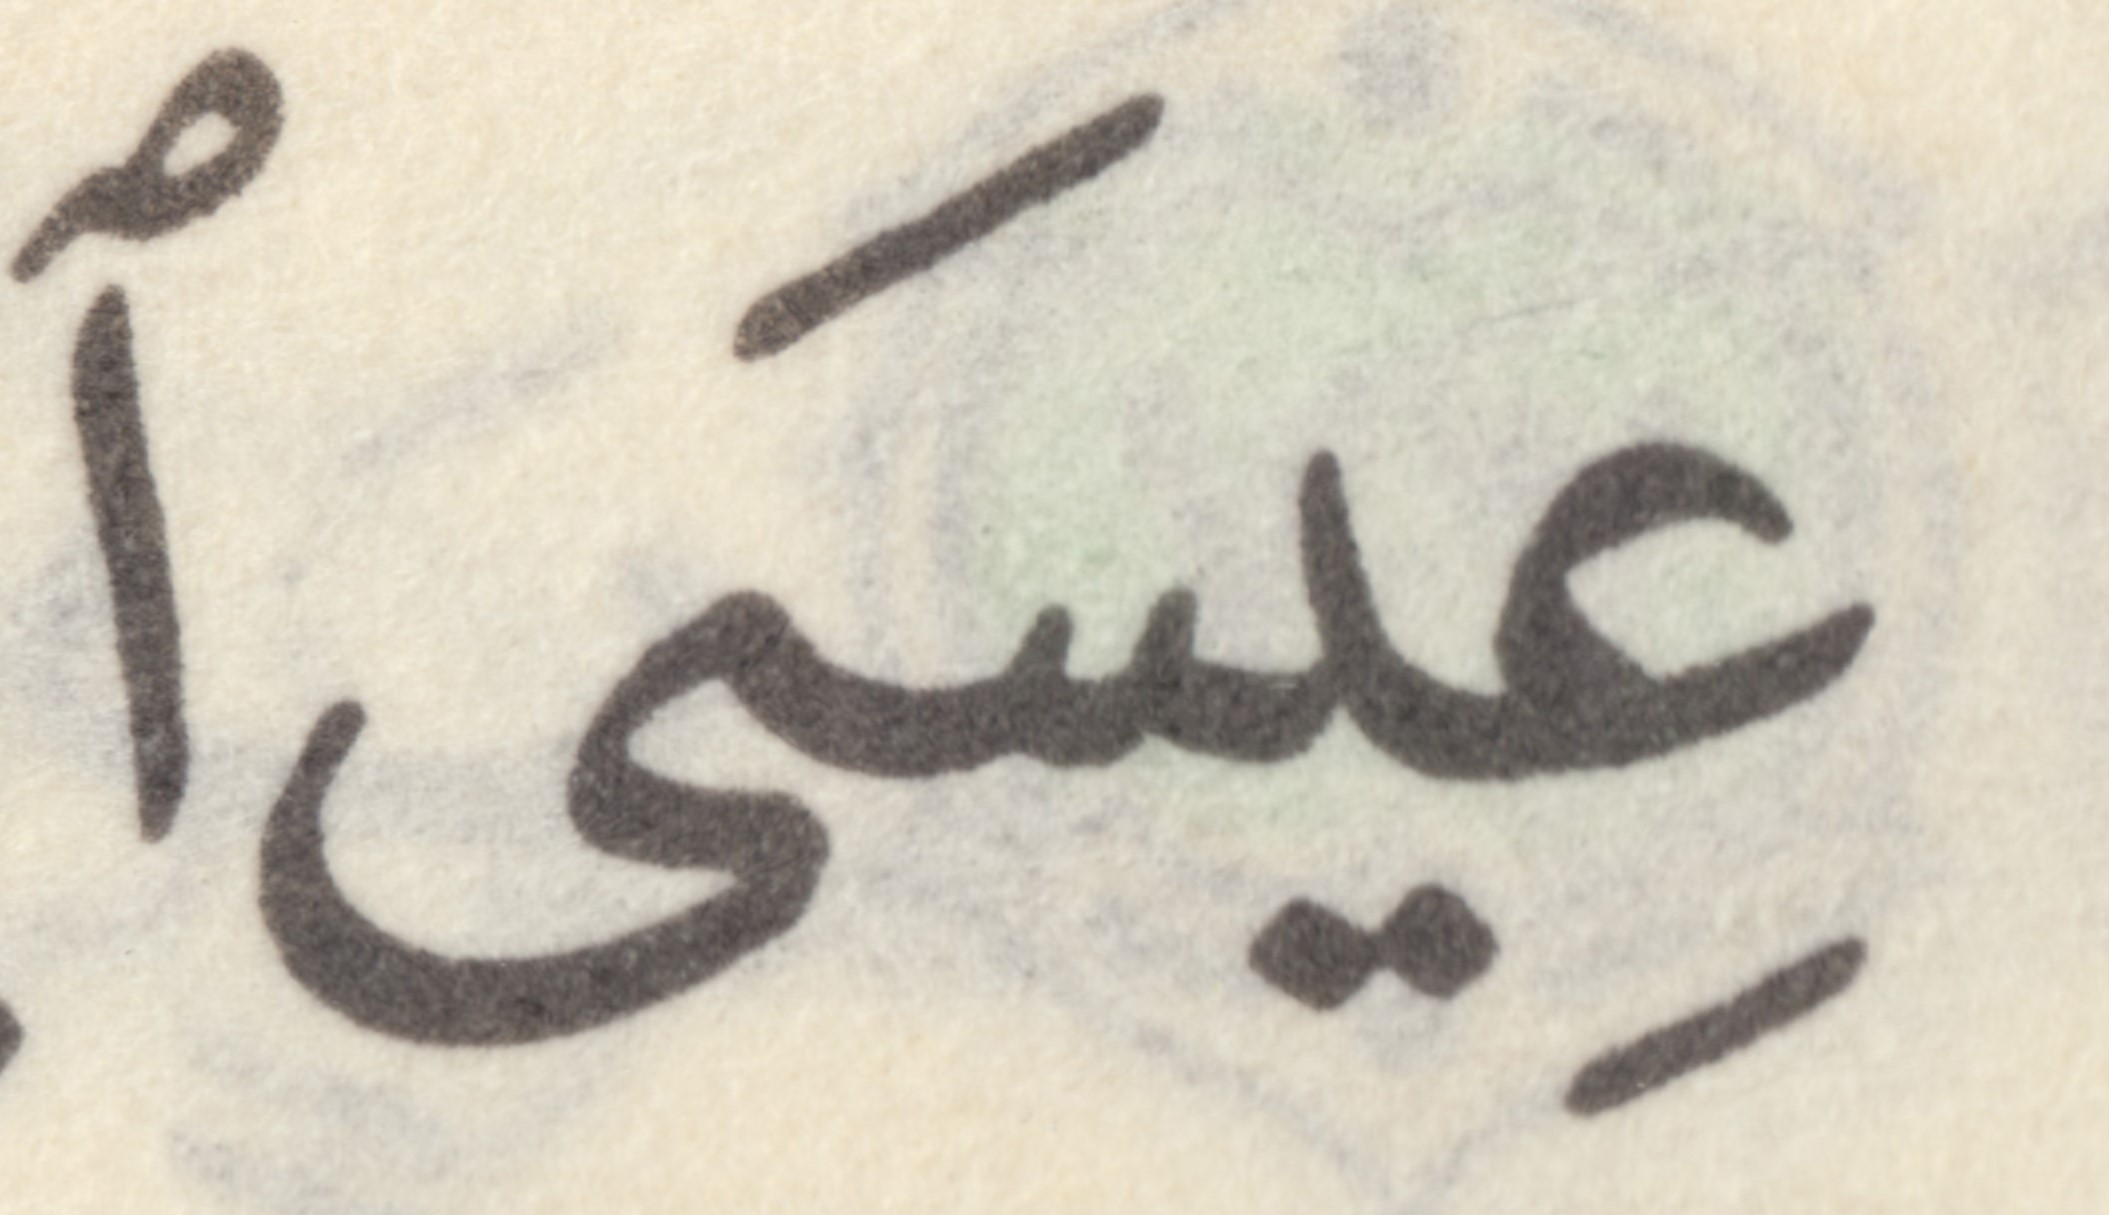 عِيسَى